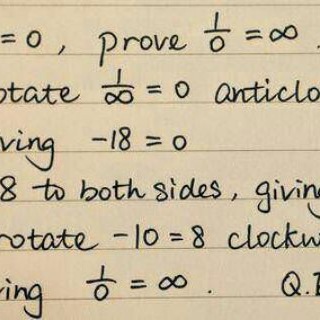 = 0 , prove 1/0 = ∞ .
otate 1/∞ = 0 anticlo
ving -18 = 0
8 to both sides, giving
rotate -10 = 8 clockw
ing 1/0 = ∞ . Q.E